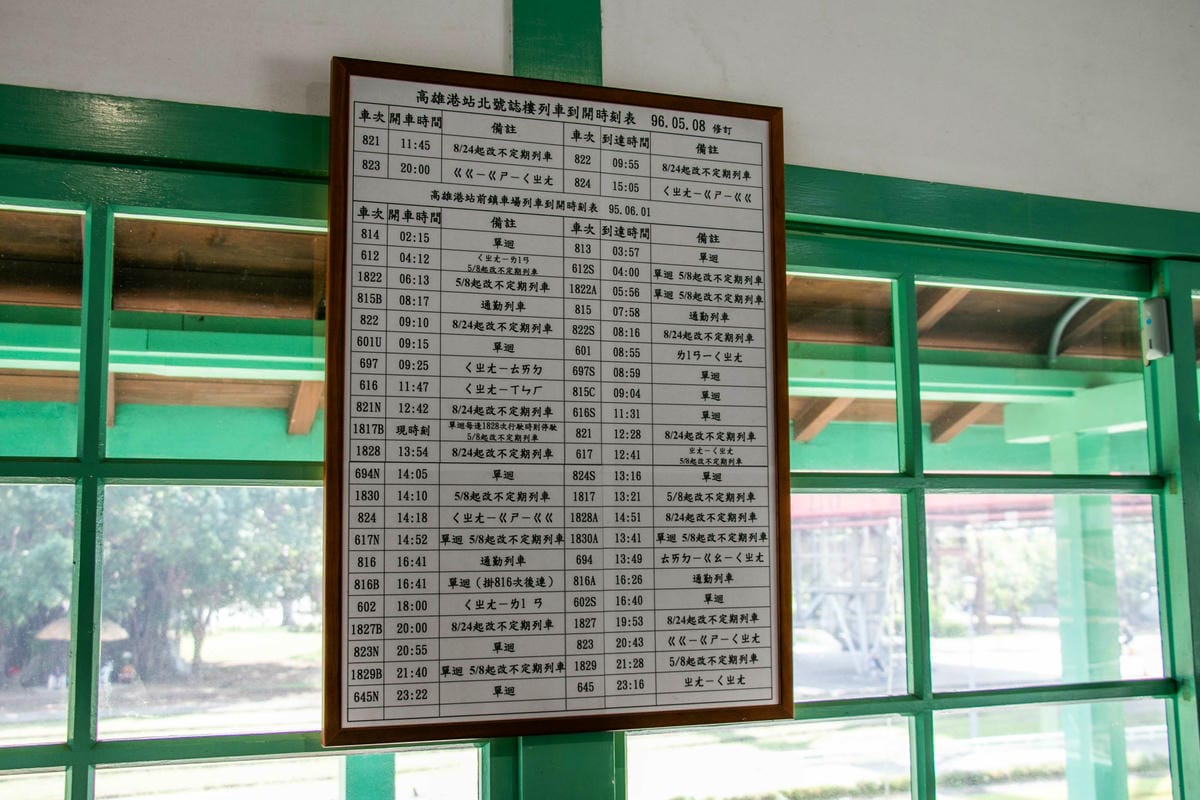 高雄港站北號誌樓列車到開時刻表 96.05.08 修訂
車次 開車時間 備註 車次 到達時間 備註
821 11:45 8/24起改不定期列車 822 09:55 8/24起改不定期列車
823 20:00 ㄍㄍ－ㄍㄕ－ㄑㄓㄤ 824 15:05 ㄑㄓㄤ－ㄍㄕ－ㄍㄍ
高雄港站前鎮車場列車到開時刻表 95.06.01
車次 開車時間 備註 車次 到達時間 備註
814 02:15 單迴 813 03:57 單迴
612 04:12 ㄑㄓㄤ－ㄌ1ㄢ 5/8起改不定期列車 612S 04:00 單迴 5/8起改不定期列車
1822 06:13 5/8起改不定期列車 1822A 05:56 單迴 5/8起改不定期列車
815B 08:17 通勤列車 815 07:58 通勤列車
822 09:10 8/24起改不定期列車 822S 08:16 8/24起改不定期列車
601U 09:15 單迴 601 08:55 ㄌ1ㄢ－ㄑㄓㄤ
697 09:25 ㄑㄓㄤ－ㄊㄞㄅ 697S 08:59 單迴
616 11:47 ㄑㄓㄤ－ㄒㄣㄏ 815C 09:04 單迴
821N 12:42 8/24起改不定期列車 616S 11:31 單迴
1817B 現時刻 單迴每逢1828次行駛時刻停駛 5/8起改不定期列車 821 12:28 8/24起改不定期列車
1828 13:54 8/24起改不定期列車 617 12:41 ㄓㄤ－ㄑㄓㄤ 5/8起改不定期列車
694N 14:05 單迴 824S 13:16 單迴
1830 14:10 5/8起改不定期列車 1817 13:21 5/8起改不定期列車
824 14:18 ㄑㄓㄤ－ㄍㄕ－ㄍㄍ 1828A 14:51 8/24起改不定期列車
617N 14:52 單迴 5/8起改不定期列車 1830A 13:41 單迴 5/8起改不定期列車
816 16:41 通勤列車 694 13:49 ㄊㄞㄅ－ㄍㄠ－ㄑㄓㄤ
816B 16:41 單迴（掛816次後連） 816A 16:26 通勤列車
602 18:00 ㄑㄓㄤ－ㄌ1 ㄢ 602S 16:40 單迴
1827B 20:00 8/24起改不定期列車 1827 19:53 8/24起改不定期列車
823N 20:55 單迴 823 20:43 ㄍㄍ－ㄍㄕ－ㄑㄓㄤ
1829B 21:40 單迴 5/8起改不定期列車 1829 21:28 5/8起改不定期列車
645N 23:22 單迴 645 23:16 ㄓㄤ－ㄑㄓㄤ